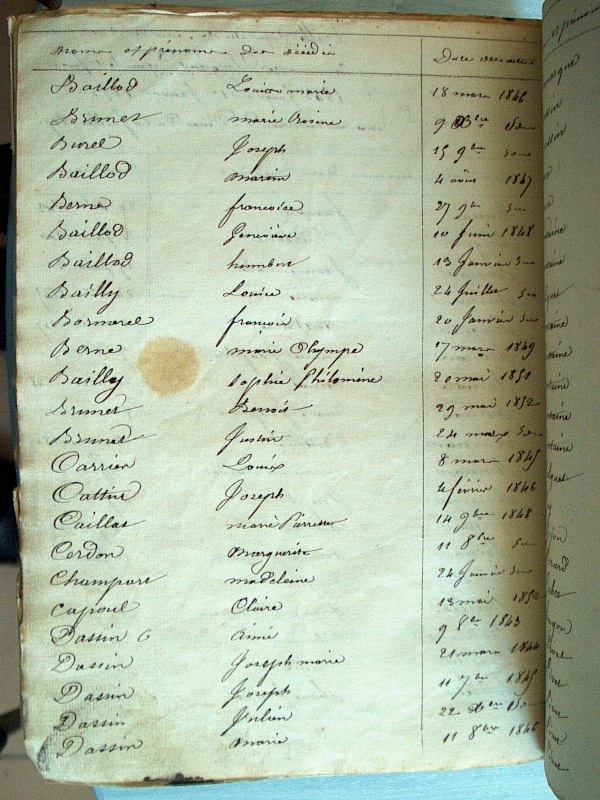 Noms et prénoms des décédés Date des actes
Baillod Louise marie 18 mars 1846
Brunet marie Rosine 9 Xbre do
Burel Joseph 15 9bre do
Baillod marin 4 août 1847
Berne francoise 27 9bre do
Baillod Geneviève 10 Juin 1848
Baillod humbert 13 Janvier do
Bailly Louise 24 Juillet do
Bornarel françois 20 Janvier do
Berne marie Olympe 17 mars 1849
Bailly Sophie philomène 20 mai 1851
Brunet Benoit 29 mai 1852
Brunet Justin 24 mars do
Carrier Louise 8 mars 1845
Cattin Joseph 4 février 1846
Caillat marie Pierrette 14 9bre 1848
Cerdon Marguerite 11 8bre do
Champart madeleine 24 Janvier do
Capoul Claire 13 mai 1852
Dassin Aimé 9 8bre 1843
Dassin Joseph marie 21 mars 1844
Dassin Joseph 11 7bre 1845
Dassin Julien 22 Xbre do
Dassin marie 11 8bre 1846